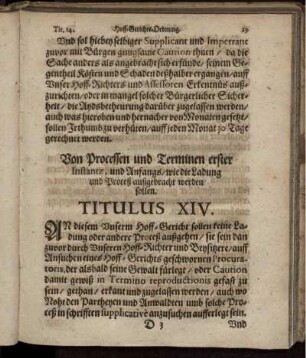 Tit. 14. Hoff-Gerichts-Ordnung. 29
Und sol hiebey selbiger Supplicant und Impetrant
zuvor mit Bürgen gnugsame Caution thuen / da die
Sache anders als angebracht sich erfünde / seinem Ge-
gentheil Kosten und Schaden deßhalber ergangen / auff
Unser Hoff-Richters und Assessoren Erkentnüs auß-
zurichten / oder in mangel solcher Bürgerlicher Sicher-
heit / die Aydsbetheurung darüber zugelassen werden /
auch / was hieroben und hernacher von Monaten gesetzt /
sollen Irthumb zu verhüten / auff jeden Monat 30 Tage
gerechnet werden.
Von Processen und Terminen erster
Instantz, und Anfangs / wie die Ladung
und Proceß außgebracht werden
sollen.
TITULUS XIV.
AN diesem Unserm Hoff-Gericht sollen keine La-
dung oder andere Proceß außgehen / sie sein dan
zuvor durch Unseren Hoff-Richter und Beysitzere / auff
Ansuchen eines Hoff-Gerichts geschwornen Procura-
toren, der als bald seine Gewalt fürlege / oder Caution
damit gewiß in Termino reproductionis gefast zu
sein / gethan / erkant und zugelassen werden / auch wo
Noht den Partheyen und Anwaldren umb solche Pro-
ceß in schrifften supplicativè anzusuchen aufferlegt sein.
D 3 Und